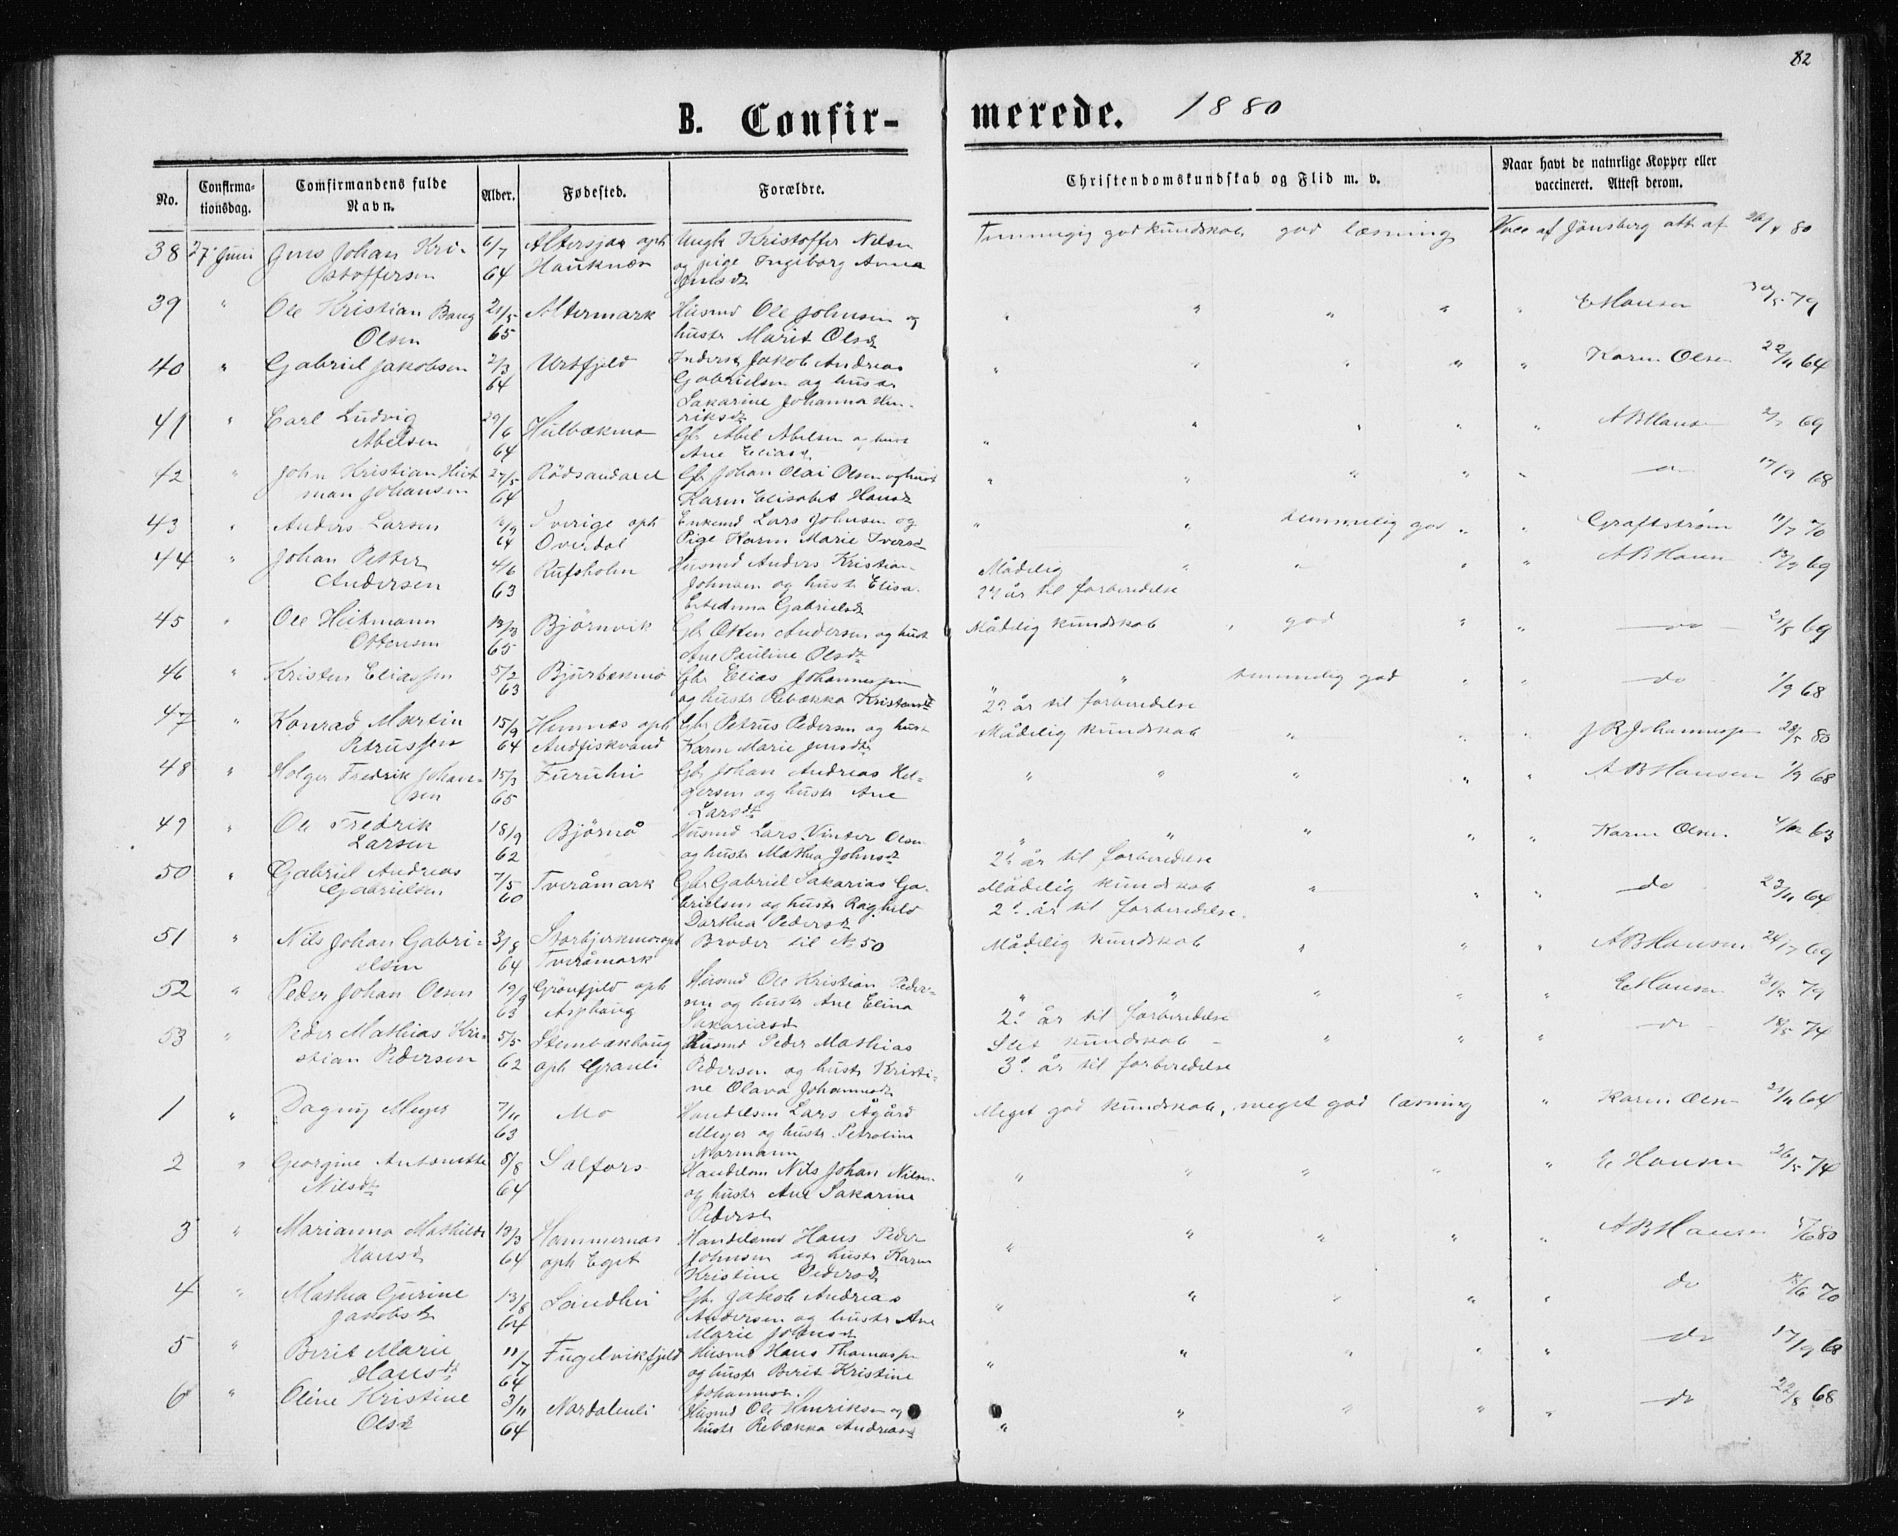 82
B. Confirmerede. 1880
No.
Confirmationsdag.
Comfirmandens fulde Navn.
Alder.
Fødested.
Forældre.
Christendomskundskab og Flid m. v.
Naar havt de naturlige Kopper eller vaccineret. Attest derom.
38 27 Juni Jens Johan Kri- 6/7 Altersjøn oph Ungk Kristoffer Nilsen god kundskab, god læsning Vacc af Jönsberg att af 26/4 80
stoffersen 64 Hauknæs og pige Ingeborg Anna
Jensd
39 " Ole Kristian Baug 21/5 Altermark Husmd Ole Johnsen og " " " " " E Hansen 30/5 79
Olsen 65 hustr Marit Olsd
40 " Gabriel Jakobsen 2/3 Urtfjeld Inderst Jakob Andreas " " " " " Karen Olsen 22/11 64
64 Gabrielsen og hustr
Sakarine Johanna Hen-
riksd
41 " Carl Ludvig 29/6 Hulbækmo Gbr Abel Abelsen og hust " " " " " A B Hansen 2/7 69
Abelsen 64 Ane Eliasd
42 " John Kristian Heit- 27/5 Rödsandaed Gbr Johan Olai Olsen og hust " " " " " do 17/9 68
man Johansen 64 Karen Elisabet Hansd
43 " Anders Larsen 64 Sverige oph Enkemd Lars Johnsen og " " temmelig god " " Graftström 11/7 70
Overdal Pige Karen Marie Iversd
44 " Johan Petter 4/6 Rufsholm Husmd Anders Kristian Mådelig " " " " A B Hansen 13/9 69
Andersen 63 Johnsen og hustr Elisa- 2det år til forberedelse
Gabrielsd
45 " Ole Heitmann 13/3 Björnvik Gbr Otten Andersen og hust Mådelig kundskab " god " " do 21/8 69
Ottensen 65 Ane Pauline Olsd
46 " Kristen Eliassen 5/2 Bjurbækmo Gbr Elias Johannessen " " temmelig god " " do 1/9 68
63 og hustr Rebækka Kristensd 2det år til forberedelse
47 " Konrad Martin 15/9 Hemnæs oph Gbr Petrus Pedersen og hust Mådelig kundskab " " " J R Johannesen 28/5 80
Petrussen 64 Andfiskvand Karen Marie Jensd
48 " Holger Fredrik Johan- 15/3 Furuhei Gbr Johan Andreas Hol- " " " " " A B Hansen 1/9 68
sen 65 gersen og hustr Ane
Larsd
49 " Ole Fredrik 18/9 Björnå Husmd Lars Vinter Olsen " " " " " Karen Olsen 4/12 63
Larsen 62 og hustr Mathea Johnsd 2det år til forberedelse
50 " Gabriel Andreas 7/5 Tveråmark Gbr Gabriel Sakarias Ga- Mådelig kundskab " " " do 23/11 64
Gabrielsen 60 brielsen og hustr Raghild 2det år til forberedelse.
Dorthea Pedersd
51 " Nils Johan Gabri- 3/8 Storbjerkmo oph Broder til N. 50 Mådelig kundskab " " " A B Hansen 24/7 69
elsen 64 Tveråmark
52 " Peder Johan Olsen 19/9 Grönfjeld oph Husmd Ole Kristian Peder- " " " " " E Hansen 79
63 Asphaug sen og hustr Ane Elina 2det år til forberedelse
Sakariasd
53 " Peder Mathias Kri- 5/5 Stenbækhaug Husmd Peder Mathias Slet kundskab - " " " do 18/5 74
stian Pedersen 62 oph Granli Pedersen og hustr Kristi- 3die år til forberedelse
ne Olava Johannesd
1 " Dagny Meyer 7/11 Mo Handelsm Lars Ågård Meget god kundskab, meget god læsning " Karen Olsen 21/11 64
63 Meyer og hustr Petroline
Normann
2 " Georgine Antonette 8/8 Selfors Handelsm Nils Johan Nilsen " " " " " E Hansen 26/5 74
Nilsd 64 og hustr Ane Sakarine
Pedersd
3 " Marianna Mathilde 13/3 Hammernæs Handelsmd Hans Peder " " " " " A B Hansen 80
Hansd 64 oph Eget Johnsen og hustr Karen
Kristine Pedersd
4 " Mathea Gurine 13/8 Sandhei Gbr Jakob Andreas " " " " " do 70
Jakobsd 64 Andersen og hustr Ane
Marie Johnsd
5 " Berit Marie 11/7 Fugelvikfjeld Husmd Hans Thomassen " " " " do 17/9 68
Hansd 64 og hustr Berit Kristine
Johannesd
6 " Oline Kristine 3/11 Nordalenli Husmd Ole Henriksen og " " " " " do 22/8 68
Olsd 64 hustr Rebækka Andreasd